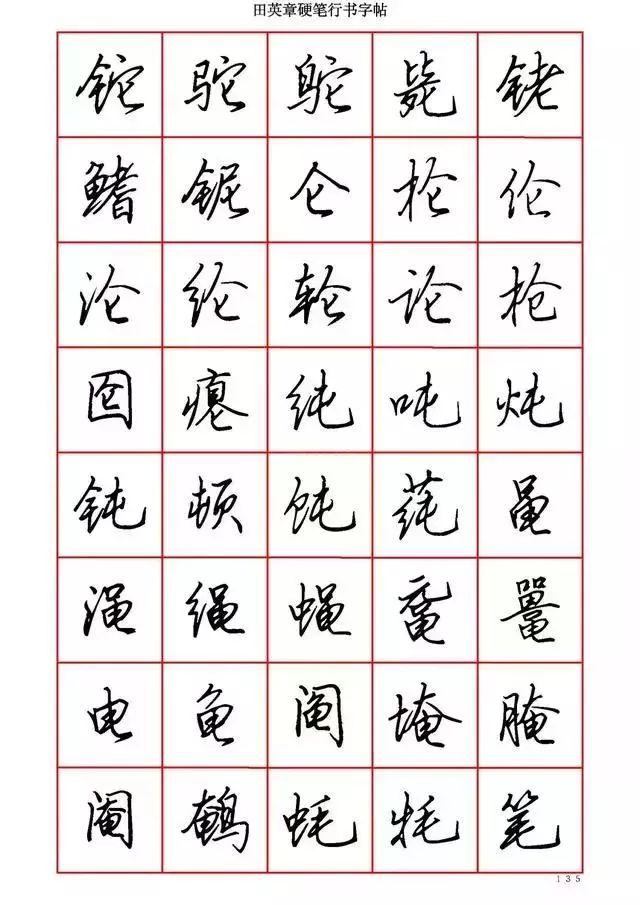 田英章硬笔行书字帖
铊 驼 鸵 毙 铑
鳍 铌 仑 抡 伦
沦 纶 轮 论 抢
囵 瘪 纯 吨 炖
钝 顿 饨 莼 黾
渑 绳 蝇 鼋 鼍
电 龟 阄 埯 腌
阉 鹌 蚝 牦 笔
135